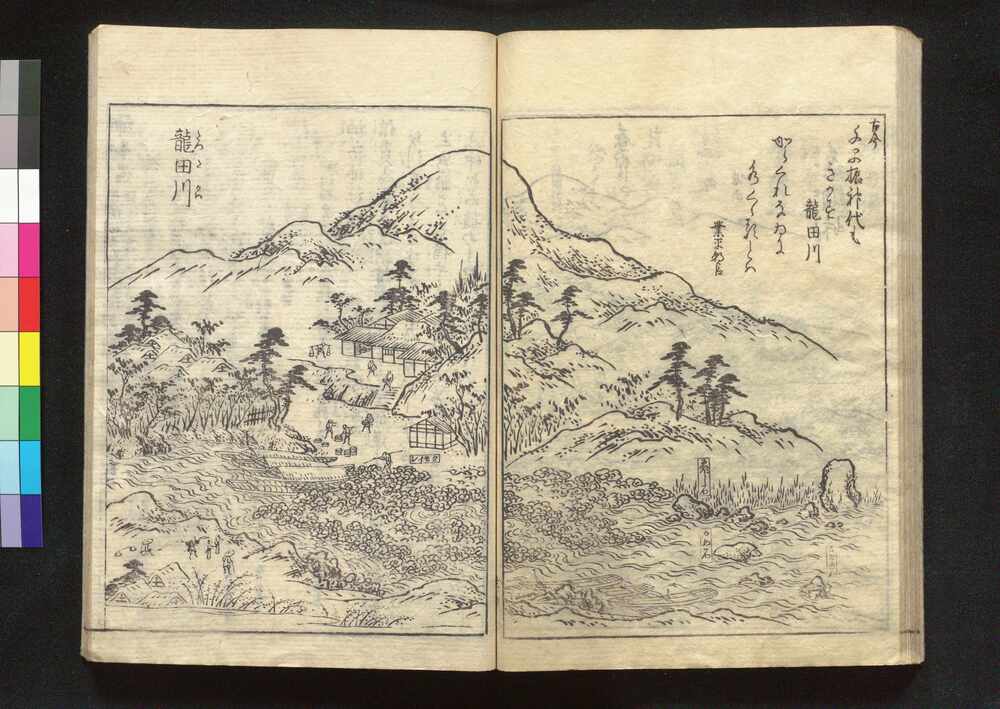 古今
ちはや振神代も
きかす
龍田川
からくれなゐに
水くゝるとは
業平朝臣
龍田川
たつたかは